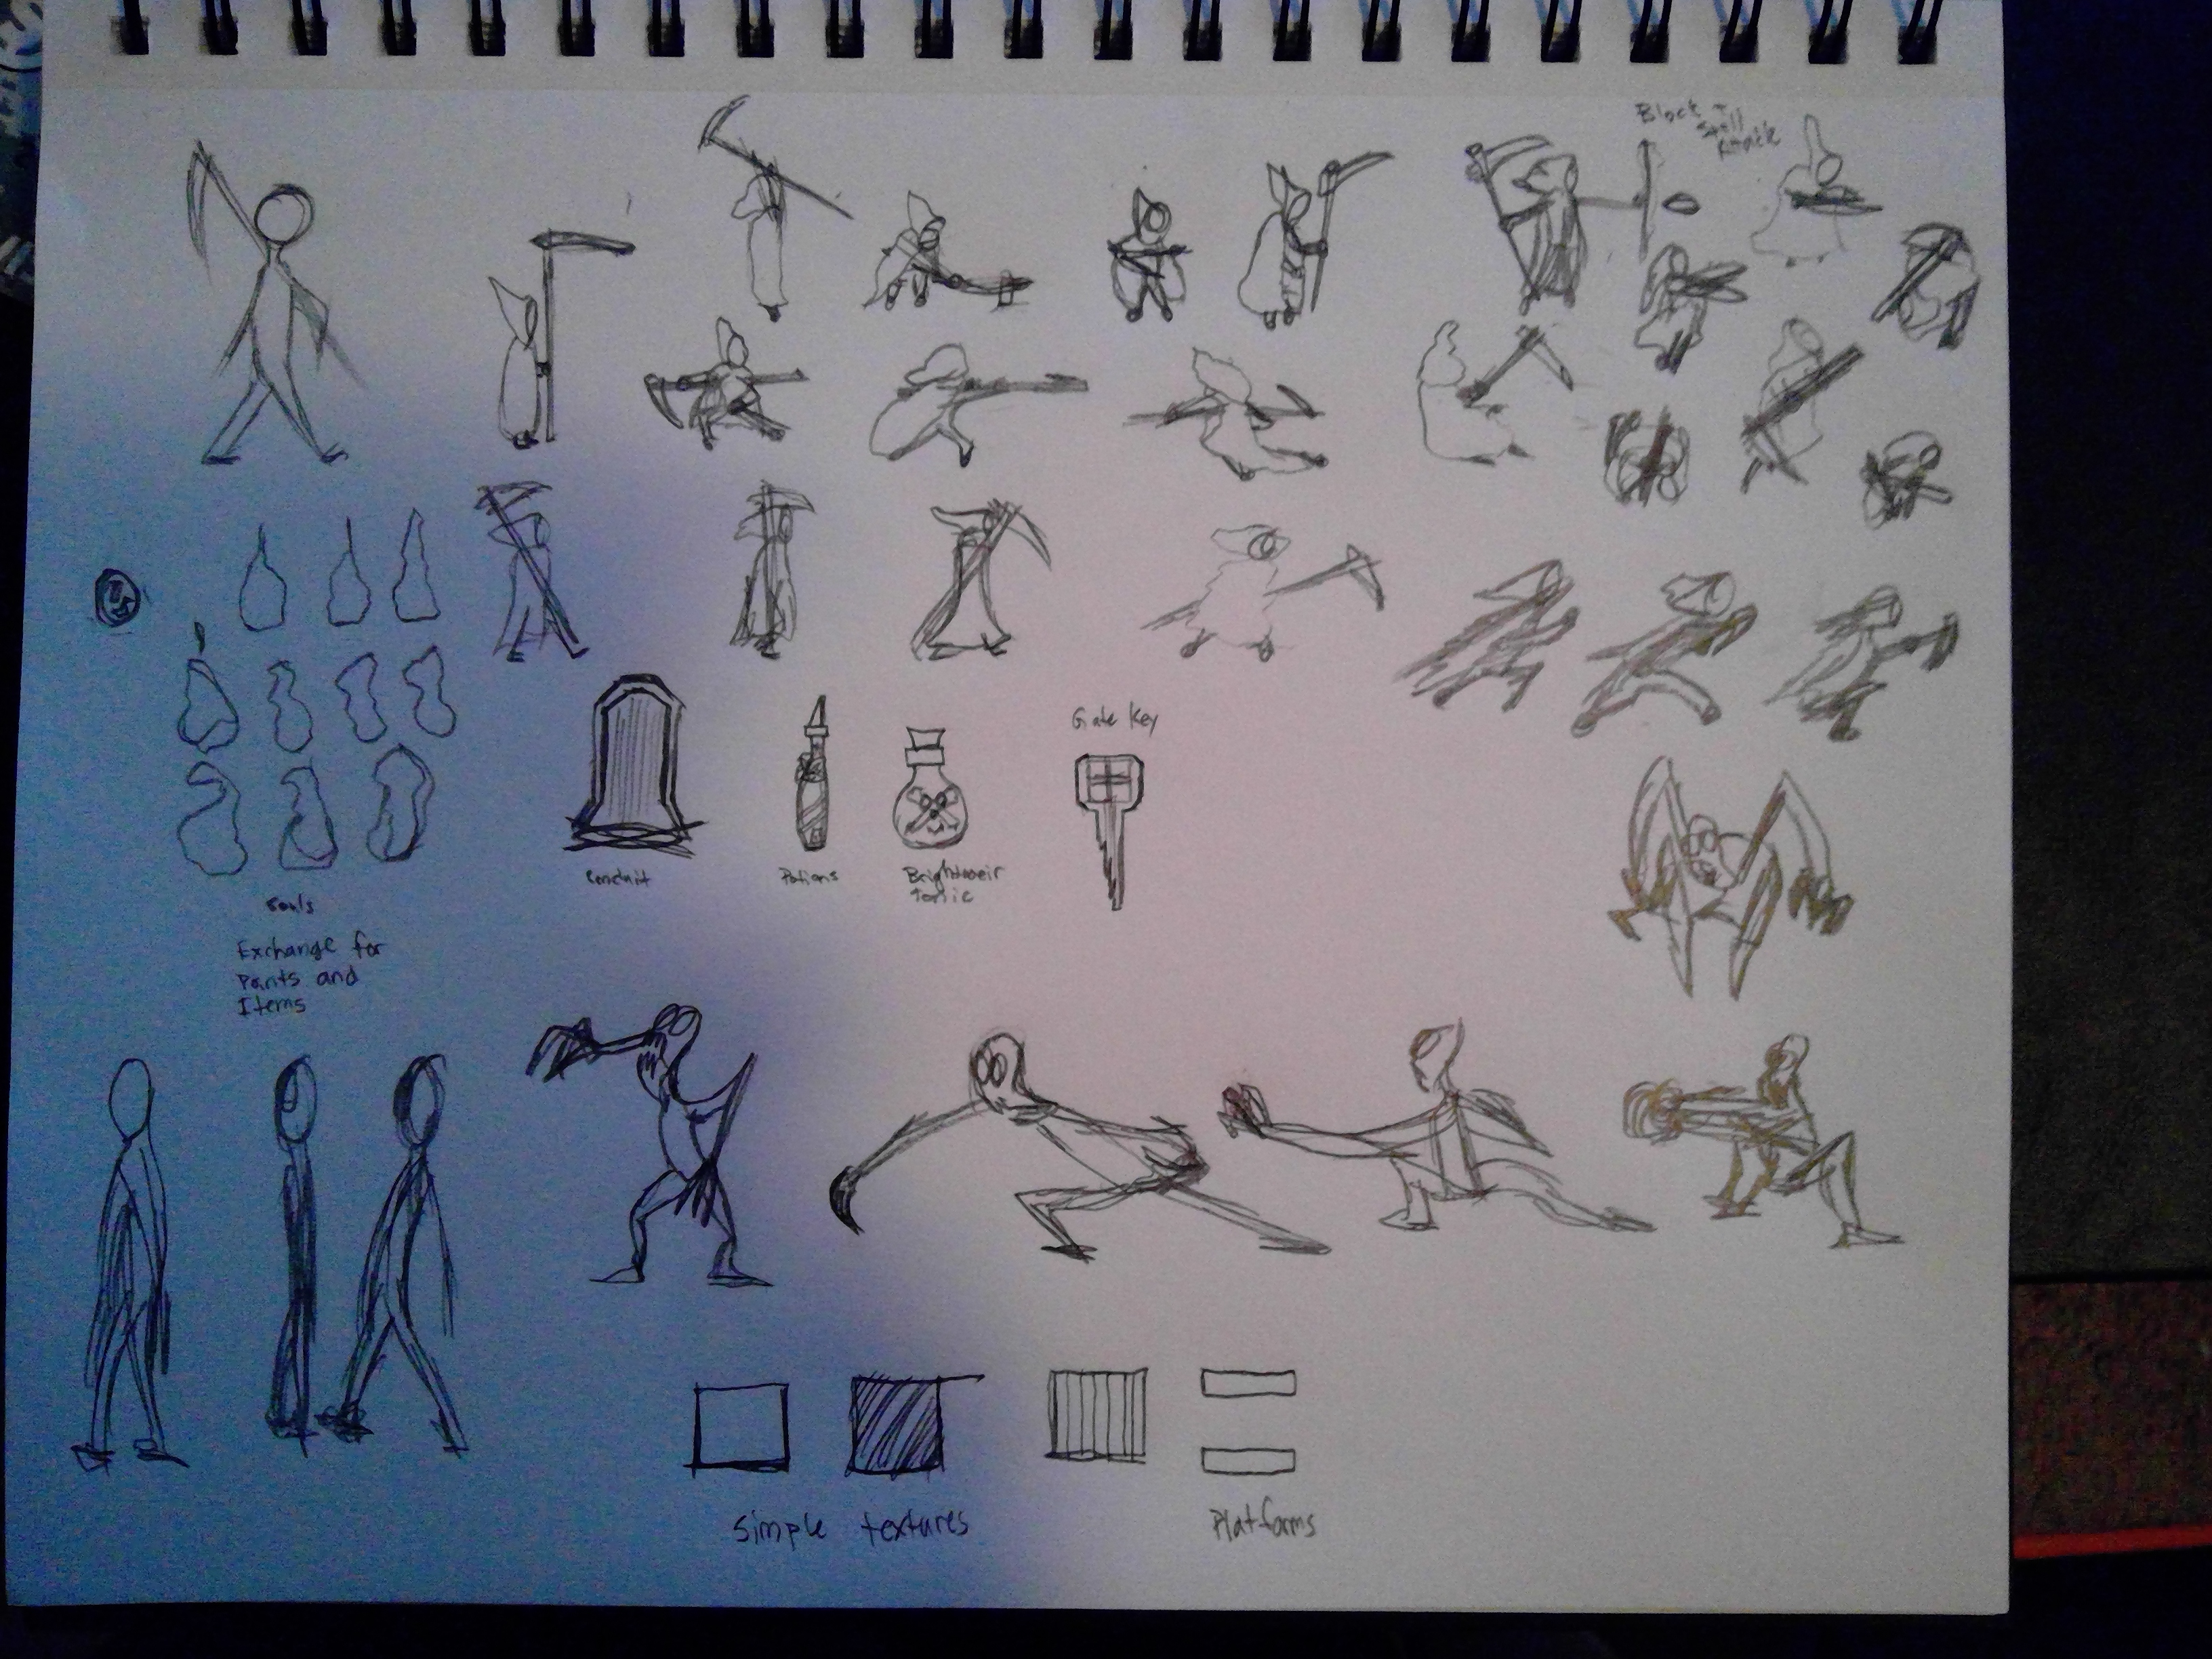 Block I
Spell
Attack
Gate Key
Conduit
Potions
Tonic
Souls
Exchange for
Parts and
Items
Simple textures
Platforms